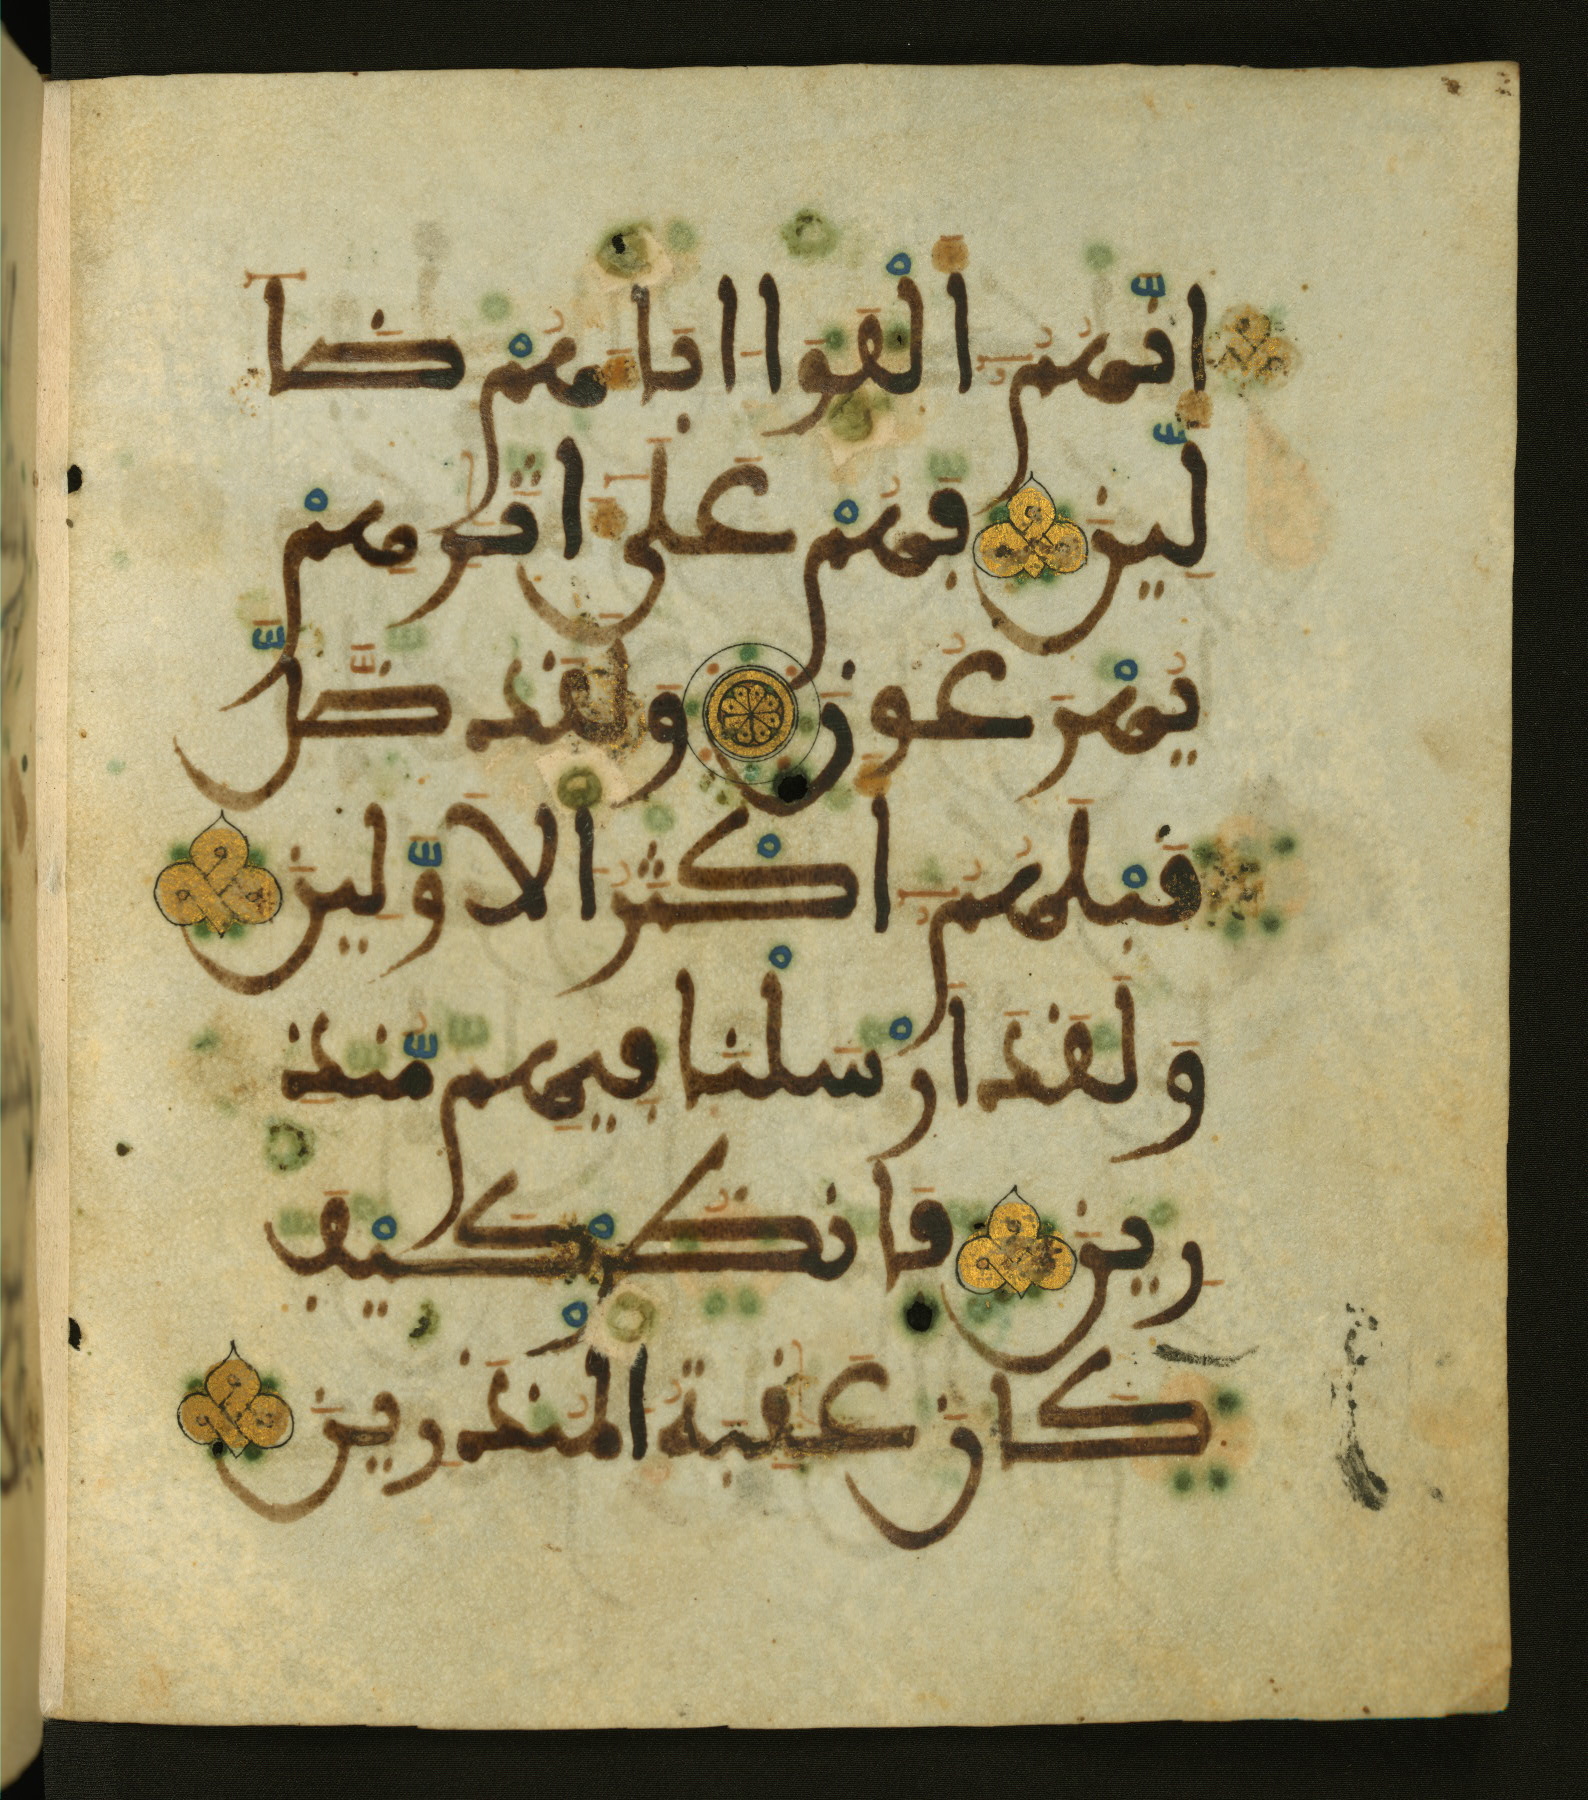 إِنَّهُمُۥٓ أَلْفَوَا ابَآءَهُمْ ضَآ
لِّينَ فَهُمْ عَلَىٰٓ ءَاثَٰرِهِمْ
يُهْرَعُونَ وَلَقَد ضَّلَّ
قَبْلَهُمُۥٓ أَكْثَرُ الَاوَّلِينَ
وَلَقَدَ ارْسَلْنَا فِيهِم مُّنذِ
رِينَ فَانظُرْ كَيْفَ
كَانَ عَٰقِبَةُ الْمُنذَرِينَ